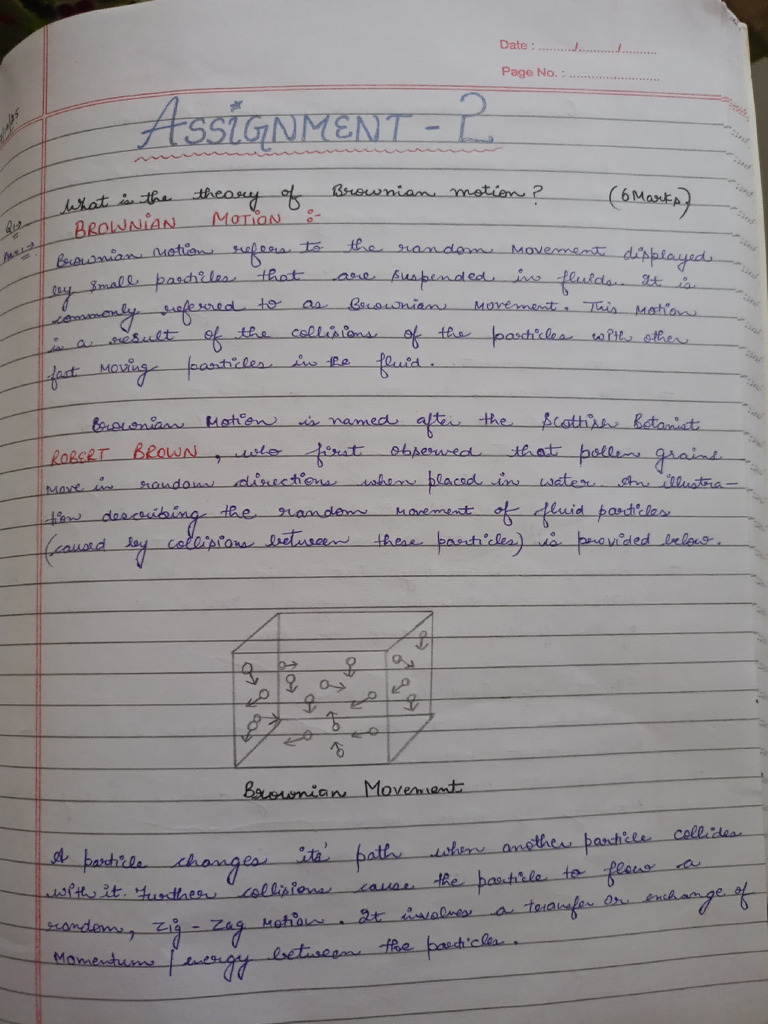 Date : ........./........../..........
Page No. : .........................
ASSIGNMENT - 2
Q1→ What is the theory of Brownian motion? (6 Marks)
BROWNIAN MOTION :-
Ans:→ Brownian Motion refers to the random movement displayed
by small particles that are suspended in fluids. It is
commonly referred to as Brownian Movement. This Motion
is a result of the collisions of the particles with other
fast moving particles in the fluid.
Brownian Motion is named after the Scottish Botanist
ROBERT BROWN, who first observed that pollen grains
move in random directions when placed in water. An illustra-
tion describing the random movement of fluid particles
(caused by collisions between these particles) is provided below.
Brownian Movement
A particle changes its' path when another particle collides
with it. Further collisions cause the particle to flow a
random, zig - zag motion. It involves a transfer or exchange of
Momentum / energy between the particles.